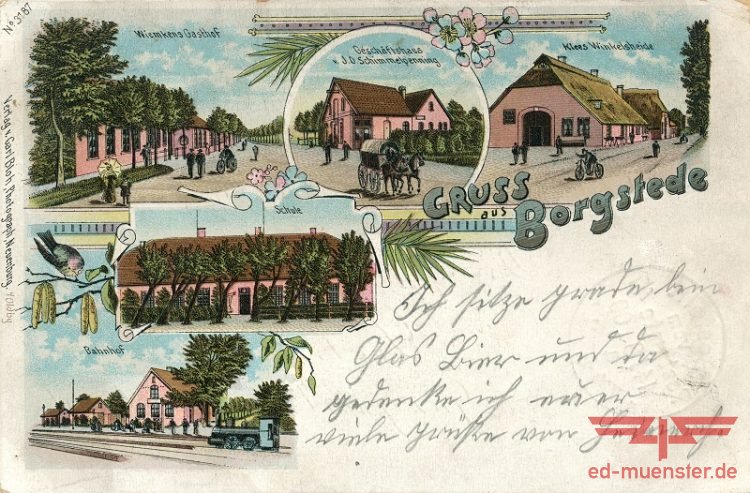 No 3187
Wiemkens Gasthof
Geschäftshaus
v. J.D. Schimmelpenning
Klees Winkelsheide
GRUSS
aus
Borgstede
Schule
Bahnhof
Verlag v. Carl Photograph, Neuenburg
Ich sitze grade beim
Glas Bier und da
gedenke ich eurer
viele Grüße von
ed-muenster.de